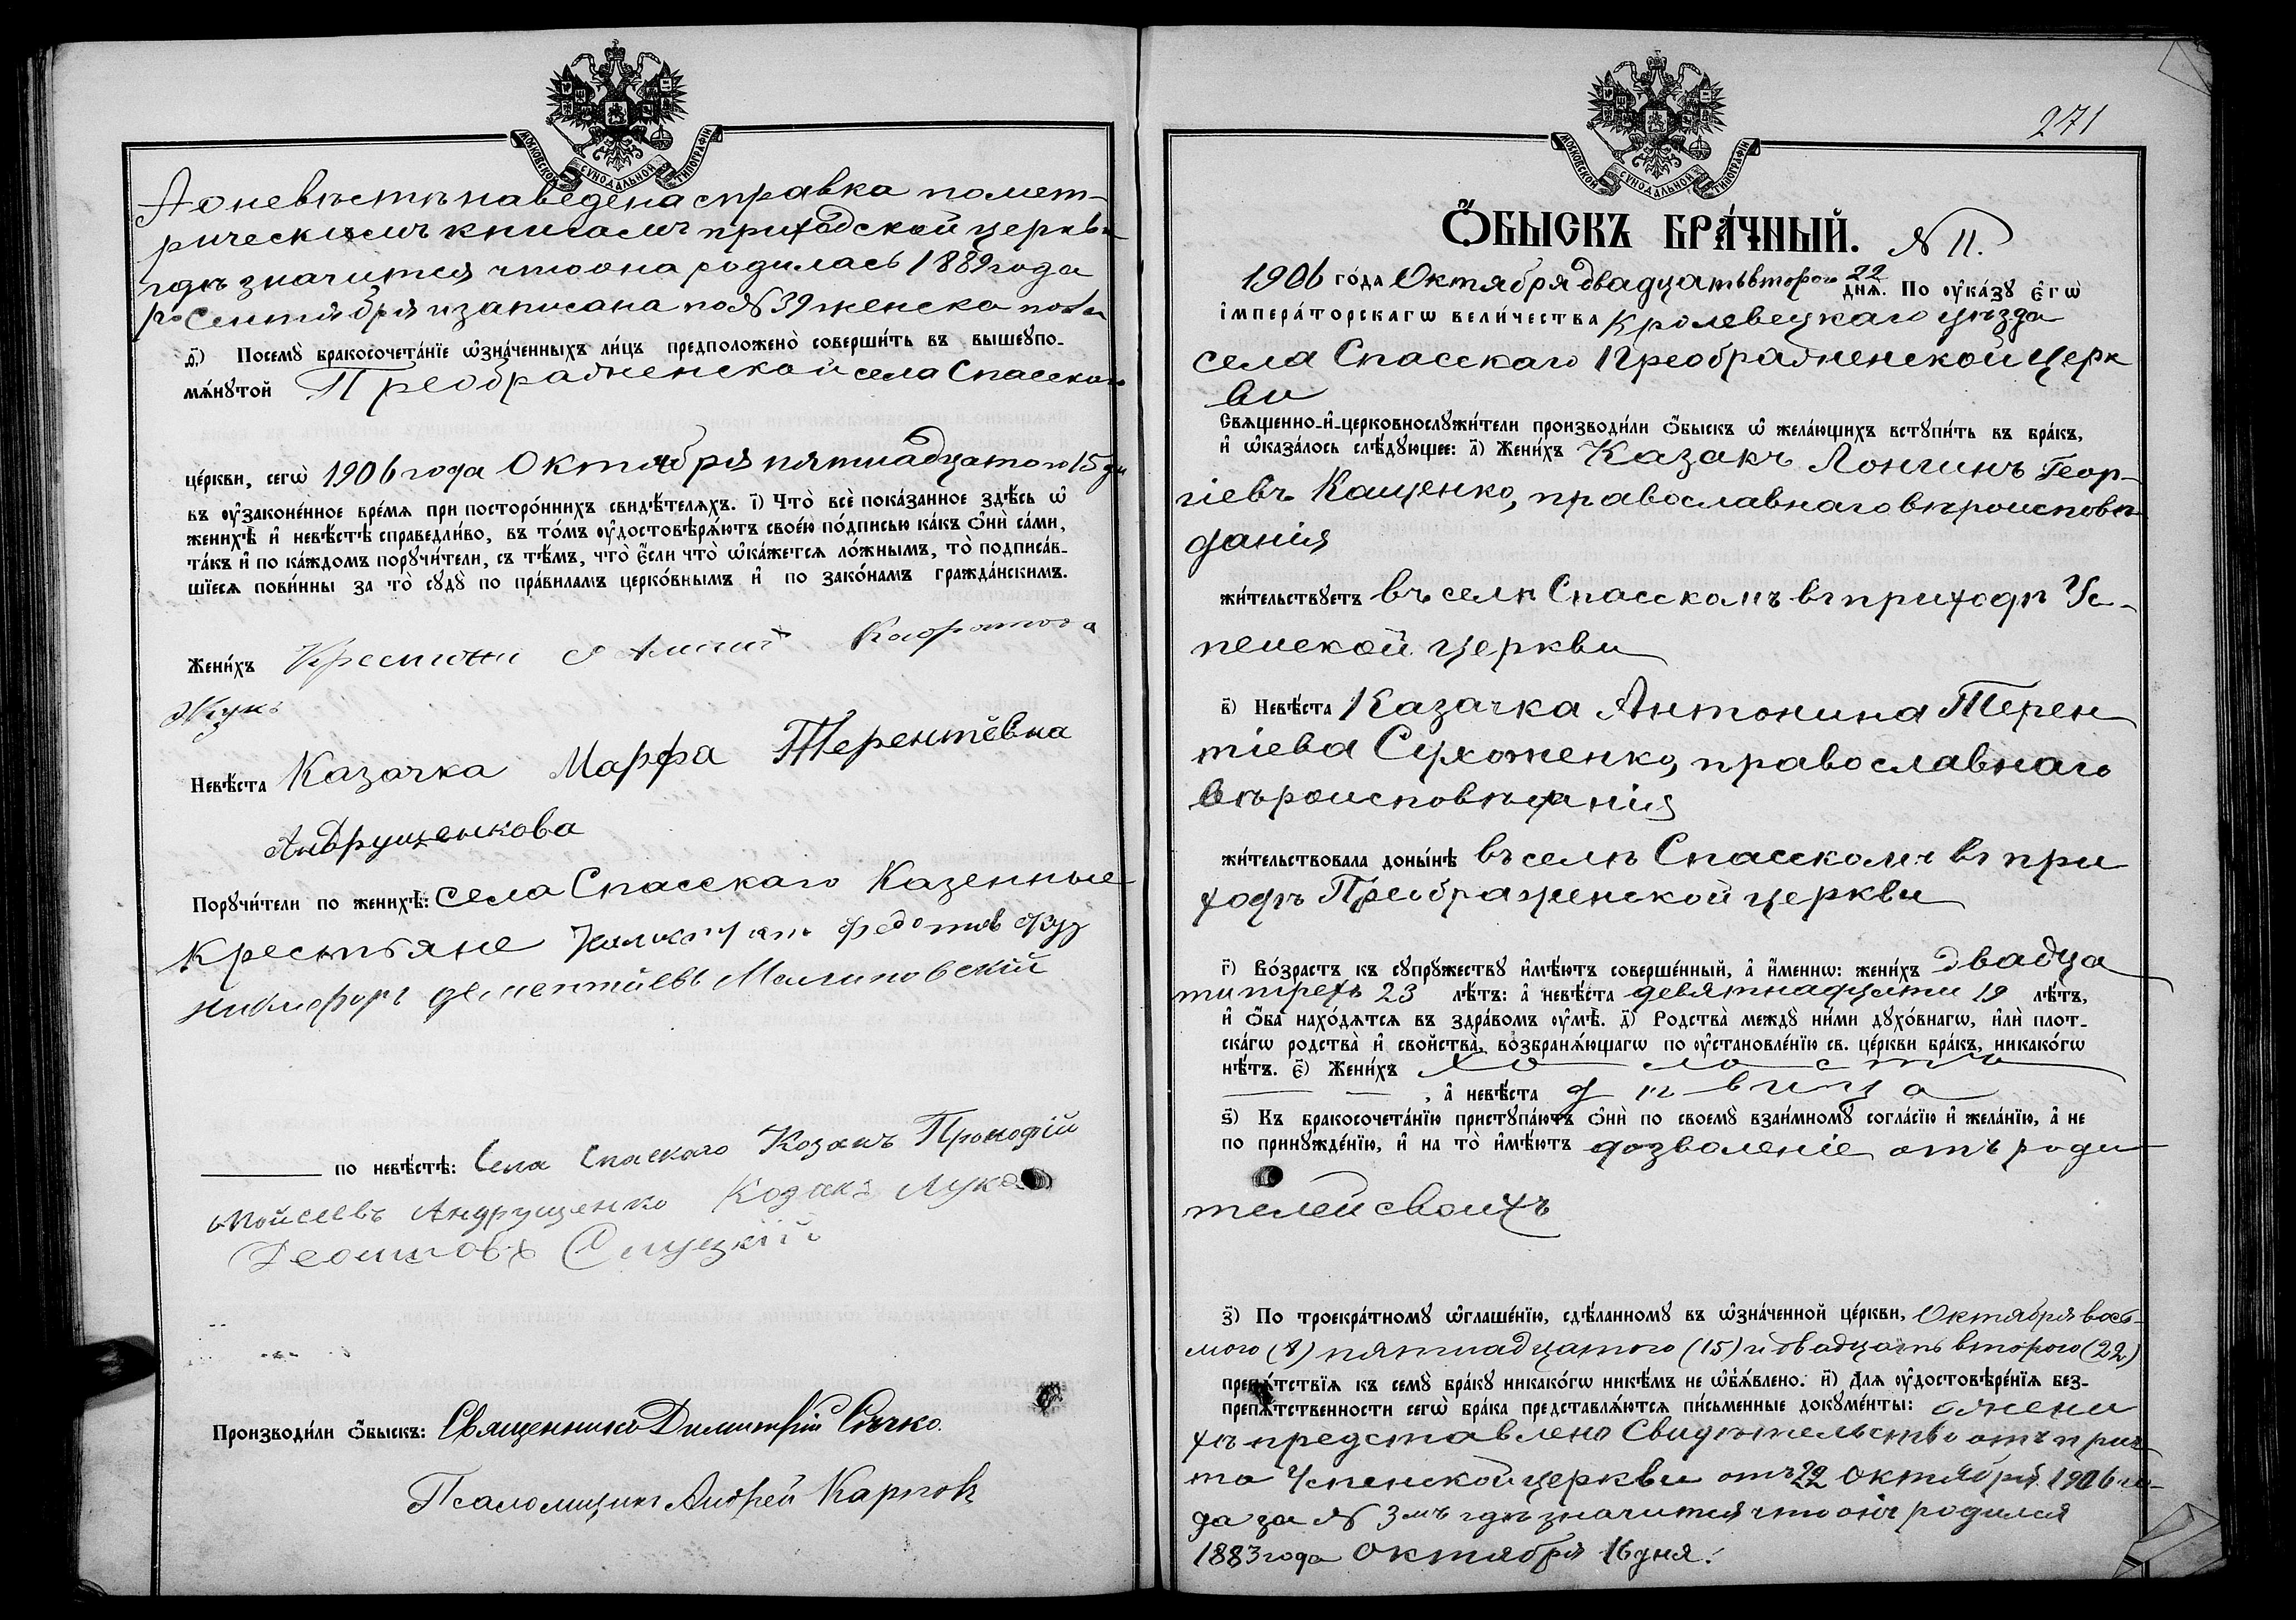 МОСКОВСКОЙ СѴНОДАЛЬНОЙ ТИПОГРАФІИ
А о невѣстѣ наведена справка по мет-
рическимъ книгамъ приходской церкви
гдѣ значится что она родилась 1889 года
Сентября и записана по № 39 женска пола
ѳ҃) Посемꙋ̀ бракосочета́нїе ѡ҆зна́ченныхъ ли́цъ предположено̀ соверши́ть въ вышеꙋпо-
мѧ́нꙋтой Преображенской села Спасскаго
це́ркви, сегѡ̀ 1906 года Октября пятнадцатого 15 дн
въ ᲂу҆зако́ненное вре́мѧ при посторо́ннихъ свидѣ́телѧхъ. і҃) Что̀ всѐ пока́занное здѣ́сь ѡ҆
женихѣ̀ и҆ невѣ́стѣ справедли́во, въ то́мъ ᲂу҆достовѣрѧ́ютъ свое́ю по́дписью ка́къ ѻ҆нѝ са́ми,
та́къ и҆ по ка́ждомъ порꙋчи́тели, съ тѣ́мъ, что̀ є҆́сли что̀ ѡ҆ка́жетсѧ ло́жнымъ, то̀ подписа́в-
шїесѧ пови́нны за то̀ сꙋдꙋ̀ по пра́виламъ церко́внымъ и҆ по зако́намъ гражда́нскимъ.
Жени́хъ
Жукъ
Невѣ́ста Казачка Марфа Терентѣвна
Андрущенкова
Порꙋчи́тели по женихѣ̀: села Спасскаго Казенные
Крестьяне Федотов
Никифоръ Дементиевъ Малиновскій
по невѣ́стѣ: Села Спаскаго Козакъ Прокофій
Мойсеевъ Андрущенко Козакъ Лука
Слуцкій
Производи́ли ѻ҆́быскъ: Священникъ Димитрій Сѣчко.
Псаломщикъ Андрей Карповъ
271
МОСКОВСКОЙ СѴНОДАЛЬНОЙ ТИПОГРАФІИ
Ѻ҆́БЫСКЪ БРА́ЧНЫЙ. № 11.
1906 го́да Октября двадцать второго 22 днѧ̀. По ᲂу҆ка́зꙋ є҆гѡ̀
і҆мпера́торскагѡ вели́чества Кролевецкаго уѣзда
села Спасскаго Преображенской церк
ви
Свѧще́нно-и҆-церковнослꙋжи́тели производи́ли ѻ҆́быскъ ѡ҆ жела́ющихъ встꙋпи́ть въ бра́къ,
и҆ ѡ҆каза́лось слѣ́дꙋющее: а҃) Жени́хъ Казакъ Лонгинъ Геор-
гіевъ Кащенко, православнаго вѣроисповѣ-
данія
жи́тельствꙋетъ въ селѣ Спасскомъ въ приходѣ Ус-
пенской церкви
в҃) Невѣ́ста Казачка Антонина Терен
тіева Сухоженко, православнаго
вѣроисповѣданія
жи́тельствовала доны́нѣ въ селѣ Спасскомъ въ при
ходѣ Преображенской церкви
г҃) Во́зрастъ къ сꙋпрꙋ́жествꙋ и҆мѣ́ютъ соверше́нный, а҆ и҆́меннѡ: жени́хъ двадца
ти трехъ 23 лѣ́тъ: а҆ невѣ́ста девятнадцати 19 лѣ́тъ,
и҆ ѻ҆́ба нахо́дѧтсѧ въ здра́вомъ ᲂу҆мѣ̀. д҃) Родства̀ междꙋ̀ ни́ми дꙋхо́внагѡ, и҆лѝ плот-
ска́гѡ родства̀ и҆ свойства̀, возбранѧ́ющагѡ по ᲂу҆становле́нїю св. це́ркви бра́къ, никако́гѡ
нѣ́тъ. є҃) Жени́хъ холостъ
, а҆ невѣ́ста дѣвица
ѕ҃) Къ бракосочета́нїю пристꙋпа́ютъ ѻ҆нѝ по своемꙋ̀ взаи́мномꙋ согла́сїю и҆ жела́нїю, а҆ не
по принꙋжде́нїю, и҆ на то̀ и҆мѣ́ютъ дозволеніе отъ роди
телей своихъ
з҃) По троекра́тномꙋ ѡ҆глаше́нїю, сдѣ́ланномꙋ въ ѡ҆зна́ченной це́ркви, Октября вось-
мого (8) пятнадцатого (15) и двадцать второго (22)
препѧ́тствїѧ къ семꙋ̀ бра́кꙋ никако́гѡ никѣ́мъ не ѡ҆б̾ѧ́влено. и҃) Длѧ ᲂу҆достовѣре́нїѧ без-
препѧ́тственности сегѡ̀ бра́ка представлѧ́ютсѧ пи́сьменные докꙋме́нты: о жени
хѣ представлено Свидѣтельство отъ прич
та Успенской церкви отъ 22 Октября 1906 го-
да за № 3мъ гдѣ значится что онъ родился
1883 года Октября 16 дня.